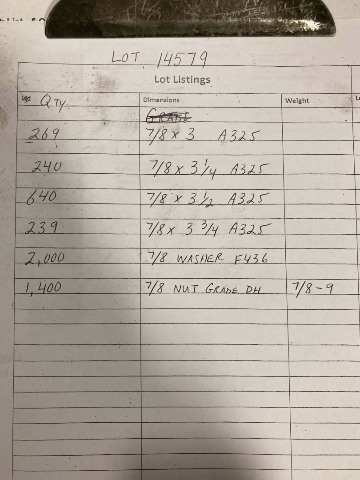 LOT 14579
Lot Listings
QTY. Dimensions Weight
GRADE
269 7/8 x 3 A325
240 7/8 x 3 1/4 A325
640 7/8 x 3 1/2 A325
239 7/8 x 3 3/4 A325
2,000 7/8 WASHER F436
1,400 7/8 NUT GRADE DH 7/8-9